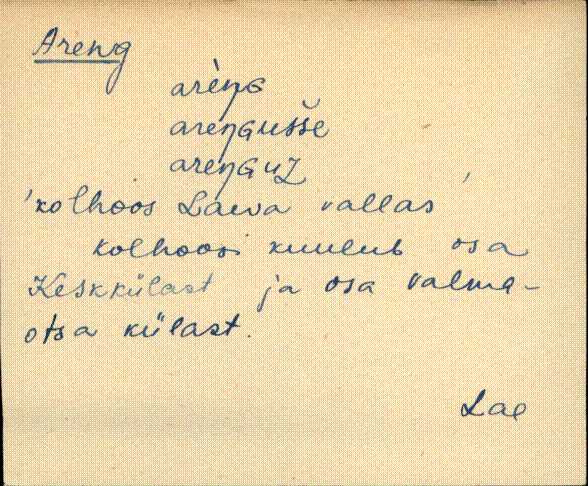 Areng
arèŋɢ
areŋɢušše
areŋɢuʒ
'kolhoos Laeva vallas'
kolhoosi kuulub osa
Keskkülast ja osa Valma-
otsa külast.
Lae